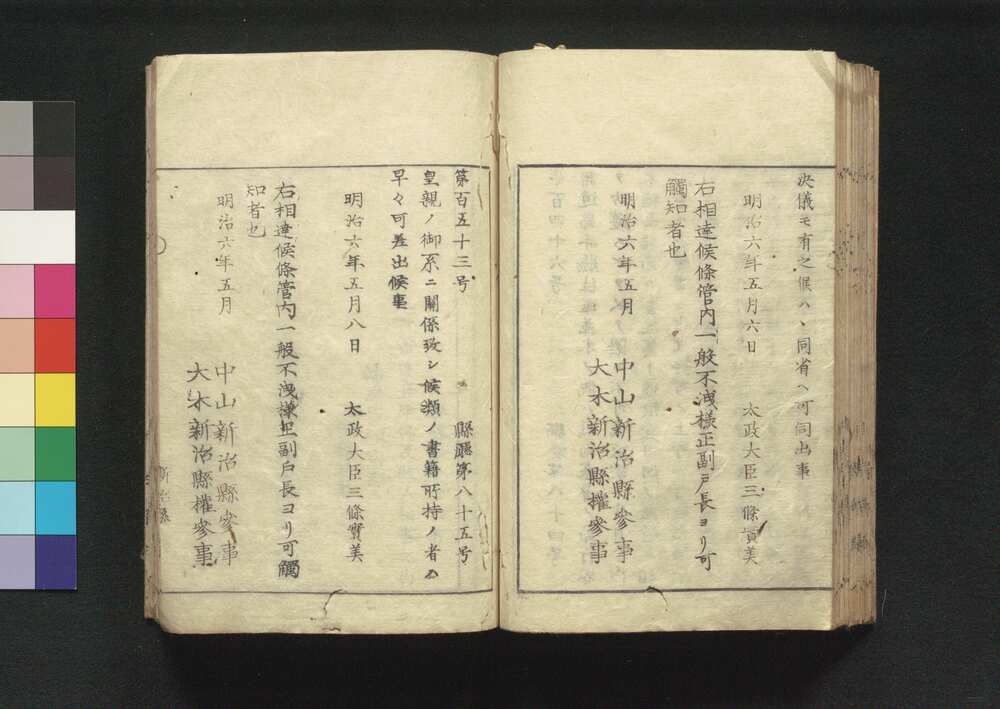 決儀モ有之候ハヽ同省ヘ可伺出事
明治六年五月六日 太政大臣三條實美
右相達候條管内一般不洩様正副戸長ヨリ可
觸知者也
明治六年五月
中山新治縣參事
大木新治縣權參事
第百五十三号 縣廳第八十五号
皇親ノ御系ニ関係致シ候類ノ書籍所持ノ者ハ
早々可差出候事
明治六年五月八日 太政大臣三條實美
右相達候條管内一般不洩様正副戸長ヨリ可觸
知者也
明治六年五月
中山新治縣參事
大木新治縣權參事